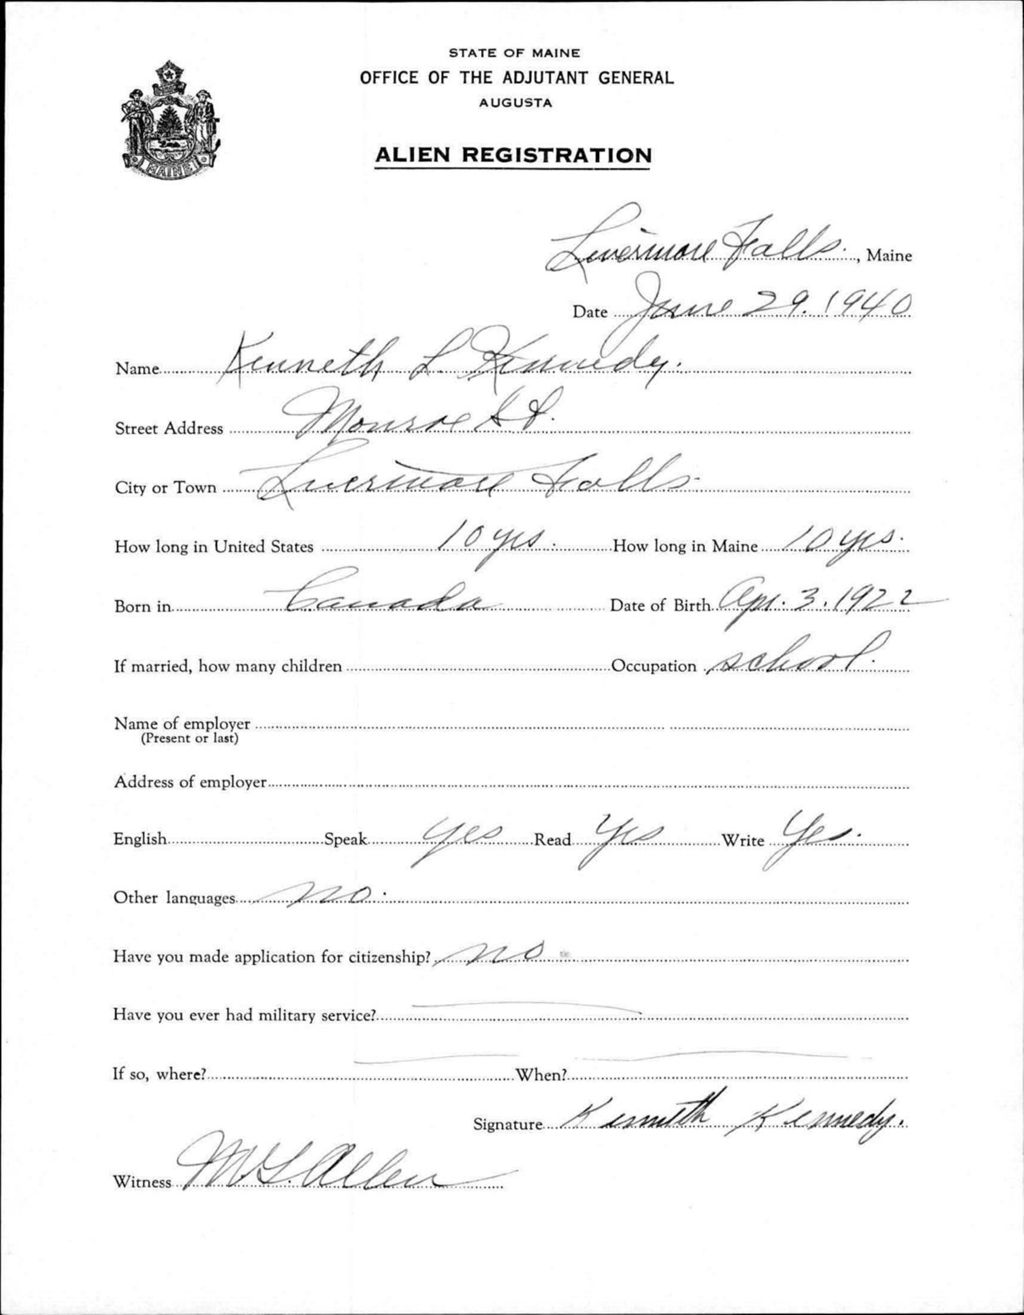 STATE OF MAINE
OFFICE OF THE ADJUTANT GENERAL
AUGUSTA
ALIEN REGISTRATION
MAINE
Livermore Falls, Maine
Date June 29. 1940
Name Kenneth L. Kennedy.
Street Address Monroe St.
City or Town Livermore Falls
How long in United States 10 yrs. How long in Maine 10 yrs.
Born in Canada Date of Birth Apr. 3. 1922
If married, how many children Occupation school.
Name of employer
(Present or last)
Address of employer
English Speak yes Read Yes Write Yes.
Other languages no.
Have you made application for citizenship? no
Have you ever had military service? —
If so, where? — When? —
Signature Kenneth Kennedy.
Witness M L Allen